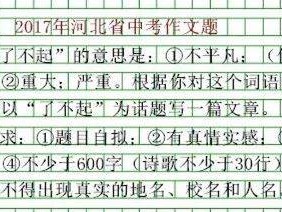 2017年河北省中考作文题
了不起”的意思是：①不平凡；（
②重大；严重。根据你对这个词语
以“了不起”为话题写一篇文章。
求：①题目自拟；②有真情实感；
④不少于600字（诗歌不少于30行）
不得出现真实的地名、校名和人名